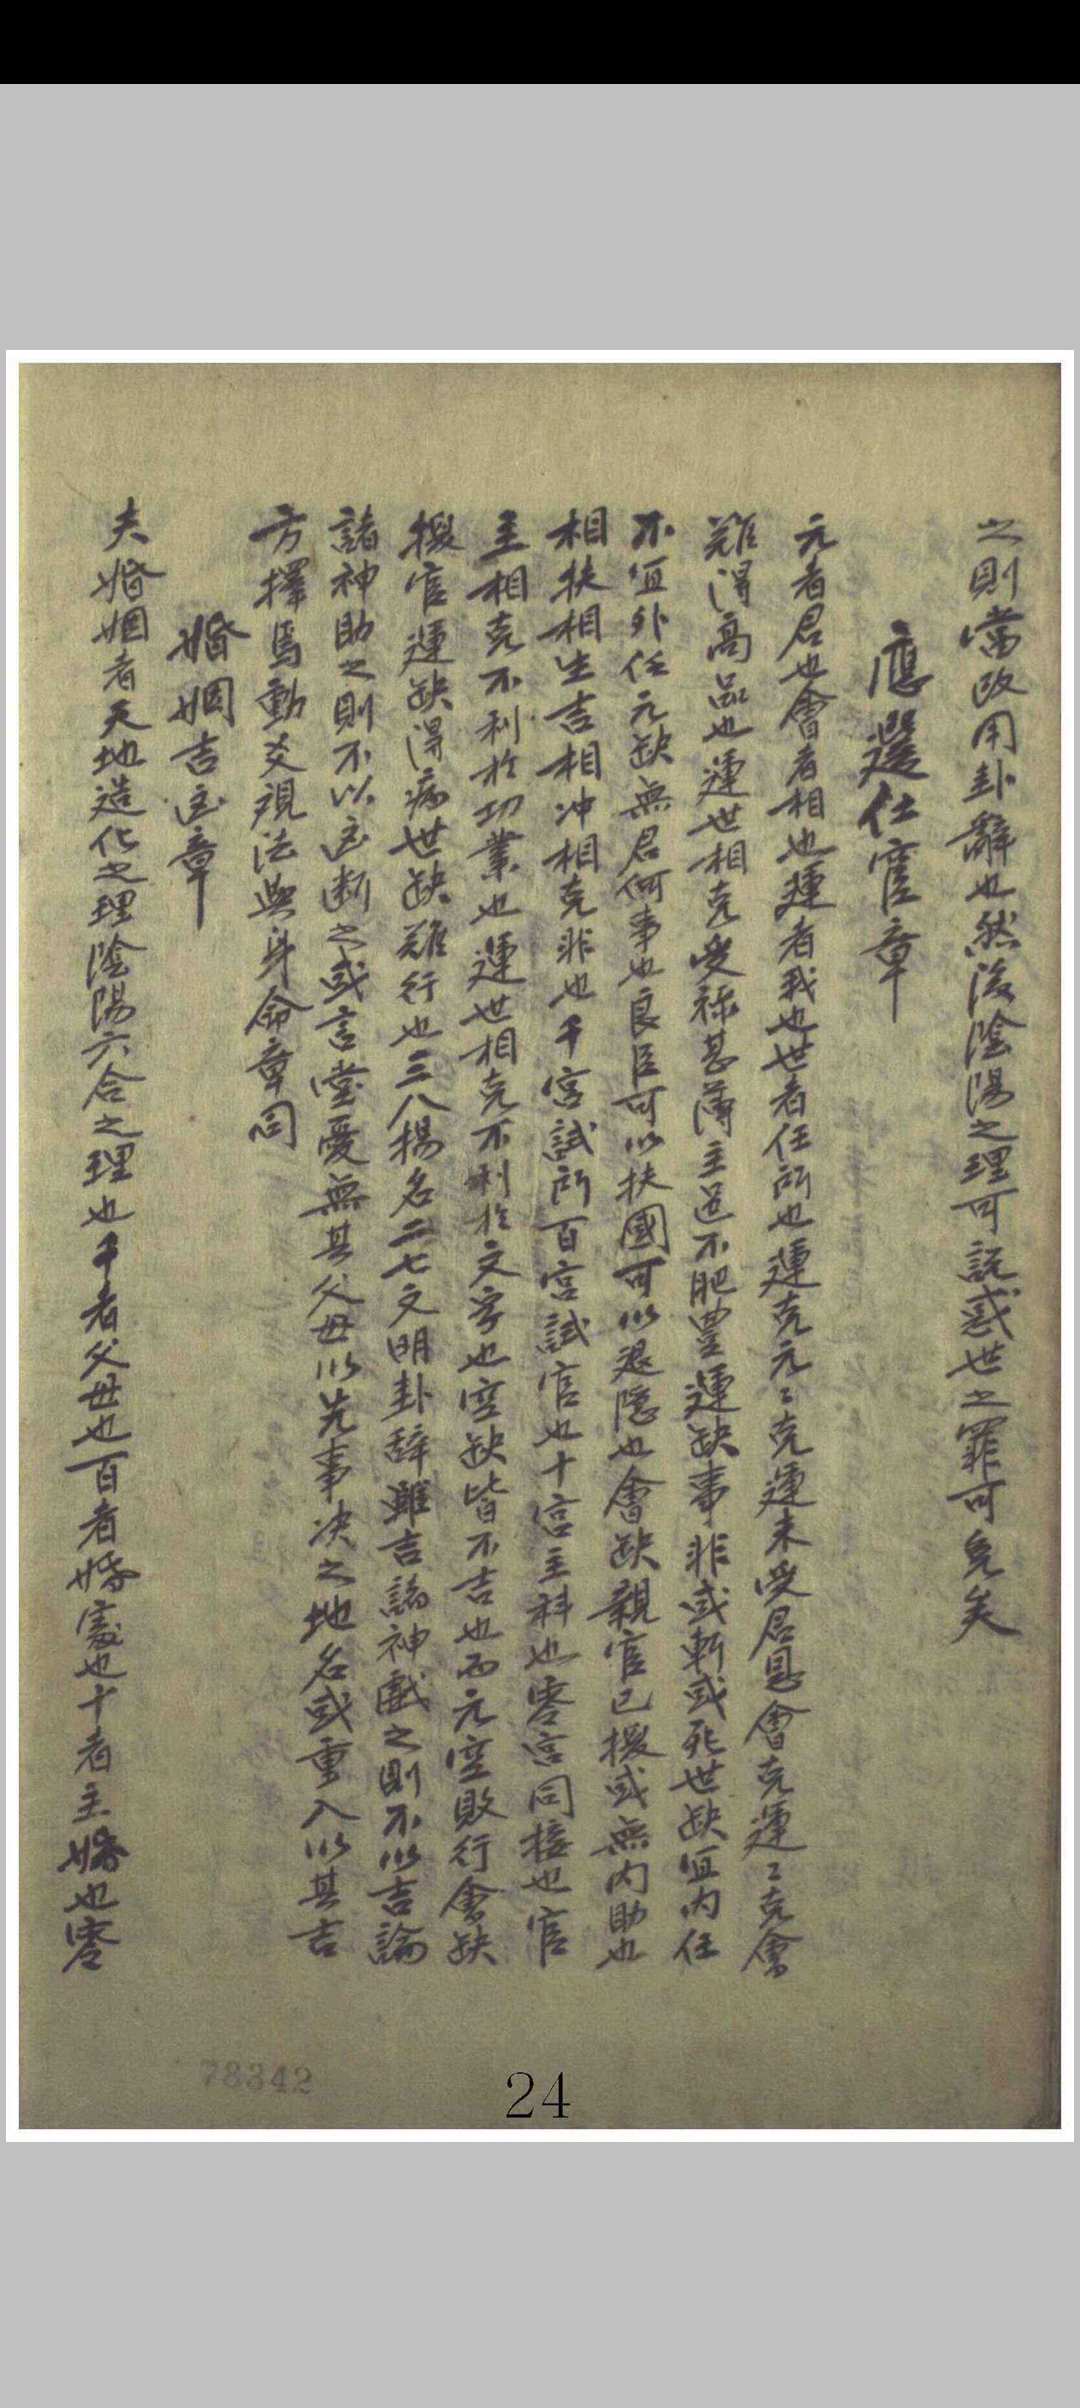 之則當改用卦辭也然後陰陽之理可託惑世之罪可免矣
應選仕宦章
元者君也會者相也運者我也世者任所也運克元〻克運未受君恩會克運〻克會
難得高品也運世相克受祿甚薄主邑不肥豊運缺事非或斬或死世缺宜內任
不宜外任元缺無君何事也良臣可以扶國可以退隱也會缺親官已援或無內助也
相扶相生吉相冲相克非也千宮試所百宮試官也十宮主科也零宮同接也官
主相克不利於功業也運世相克不利於文字也空缺皆不吉也而元空敗行會缺
援官運缺得病世缺難行也三八揚名二七文明卦辭雖吉諸神戲之則不以吉論
諸神助之則不以凶断之或言堂憂無其父母以先事决之地名或重入以其吉
方擇焉動爻視法與身命章同
婚姻吉凶章
夫婚姻者天地造化之理陰陽六合之理也千者父母也百者婚處也十者主婚也零
78342
24